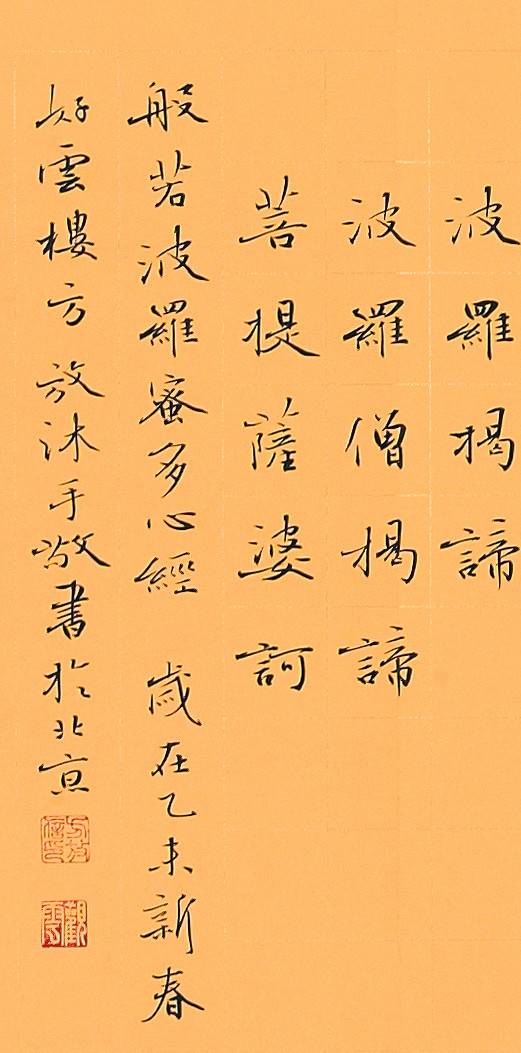 波羅揭諦
波羅僧揭諦
菩提薩婆訶
般若波羅蜜多心經 歲在乙未新春
好雲樓方放沐手敬書於北京